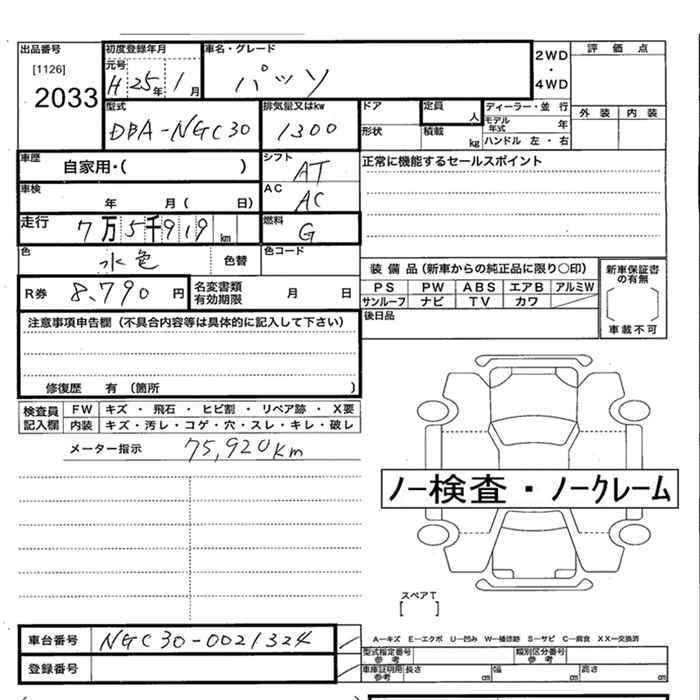 出品番号
[1126]
2033
初度登録年月
元号
H 25年 1月
車名・グレード
パッソ
2WD
・
4WD
評価点
外装 内装
型式
DBA-NGC30
排気量又はkw
1300
ドア
形状
定員
人
積載
kg
ディーラー・並行
モデル年式 年
ハンドル 左・右
車歴
自家用・( )
シフト
AT
正常に機能するセールスポイント
車検
年 月( 日)
AC
AC
走行
7万5千919km
燃料
G
色
水色
色替
色コード
R券 8,790 円
名変書類有効期限 月 日
装備品(新車からの純正品に限り○印)
PS PW ABS エアB アルミW
サンルーフ ナビ TV カワ
後日品
新車保証書の有無
車載不可
注意事項申告欄(不具合内容等は具体的に記入して下さい)
修復歴 有(箇所 )
検査員記入欄
FW キズ・飛石・ヒビ割・リペア跡・X要
内装 キズ・汚レ・コゲ・穴・スレ・キレ・破レ
メーター指示 75,920km
ノー検査・ノークレーム
スペアT
[ ]
車台番号 NGC30-0021324
登録番号
A―キズ E―エクボ U―凹み W―補修跡 S―サビ C―腐食 XX―交換済
型式指定番号 参考
類別区分番号 参考
車庫証明用 参考 長さ cm 幅 cm 高さ cm